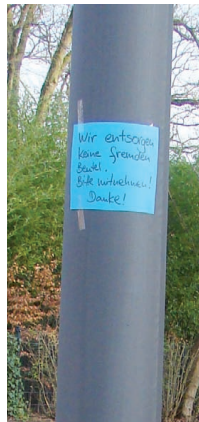 Wir entsorgen
keine fremden
Beutel.
Bitte mitnehmen!
Danke!